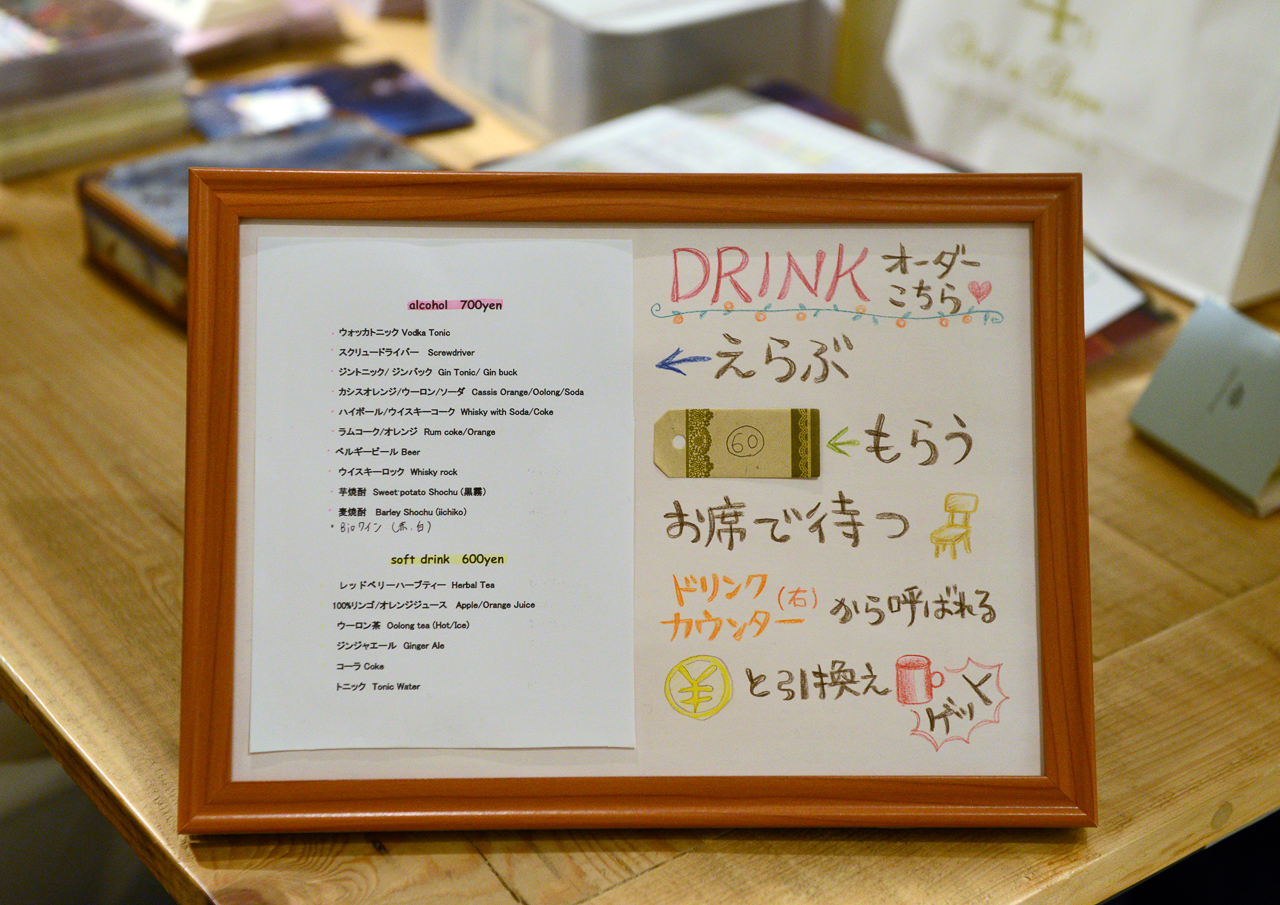 alcohol 700yen
・ウォッカトニック Vodka Tonic
・スクリュードライバー Screwdriver
・ジントニック/ ジンバック Gin Tonic/ Gin buck
・カシスオレンジ/ウーロン/ソーダ Cassis Orange/Oolong/Soda
・ハイボール/ウイスキーコーク Whisky with Soda/Coke
・ラムコーク/オレンジ Rum coke/Orange
・ベルギービール Beer
・ウイスキーロック Whisky rock
・芋焼酎 Sweet potato Shochu (黒霧)
・麦焼酎 Barley Shochu (iichiko)
・Bioワイン (赤、白)
soft drink 600yen
レッドベリーハーブティー Herbal Tea
100%リンゴ/オレンジジュース Apple/Orange Juice
ウーロン茶 Oolong tea (Hot/Ice)
ジンジャエール Ginger Ale
コーラ Coke
トニック Tonic Water
DRINK オーダー
こちら♥
←えらぶ
60 ←もらう
お席で待つ
ドリンク
カウンター (右) から呼ばれる
¥ と引換え ゲット